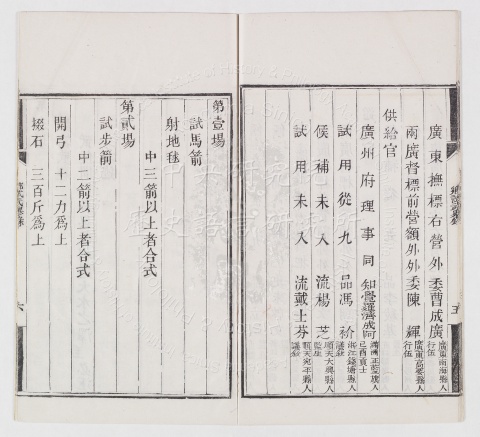 廣東撫標右營外委曹成廣 廣東南海縣人 行伍
兩廣督標前營額外外委陳輝 廣東高要縣人 行伍
供給官
廣州府理事同知覺羅濟成阿 滿洲正藍旗人 己酉貢士
試用從九品馮𥘵 浙江錢塘縣人 議敘
候補未入流楊芝 順天大興縣人 監生
試用未入流戴士芬 順天宛平縣人 議敘
五
第壹場
試馬箭
射地毬
中三箭以上者合式
第貳場
試步箭
中二箭以上者合式
開弓 十二力爲上
掇石 三百斤爲上
六